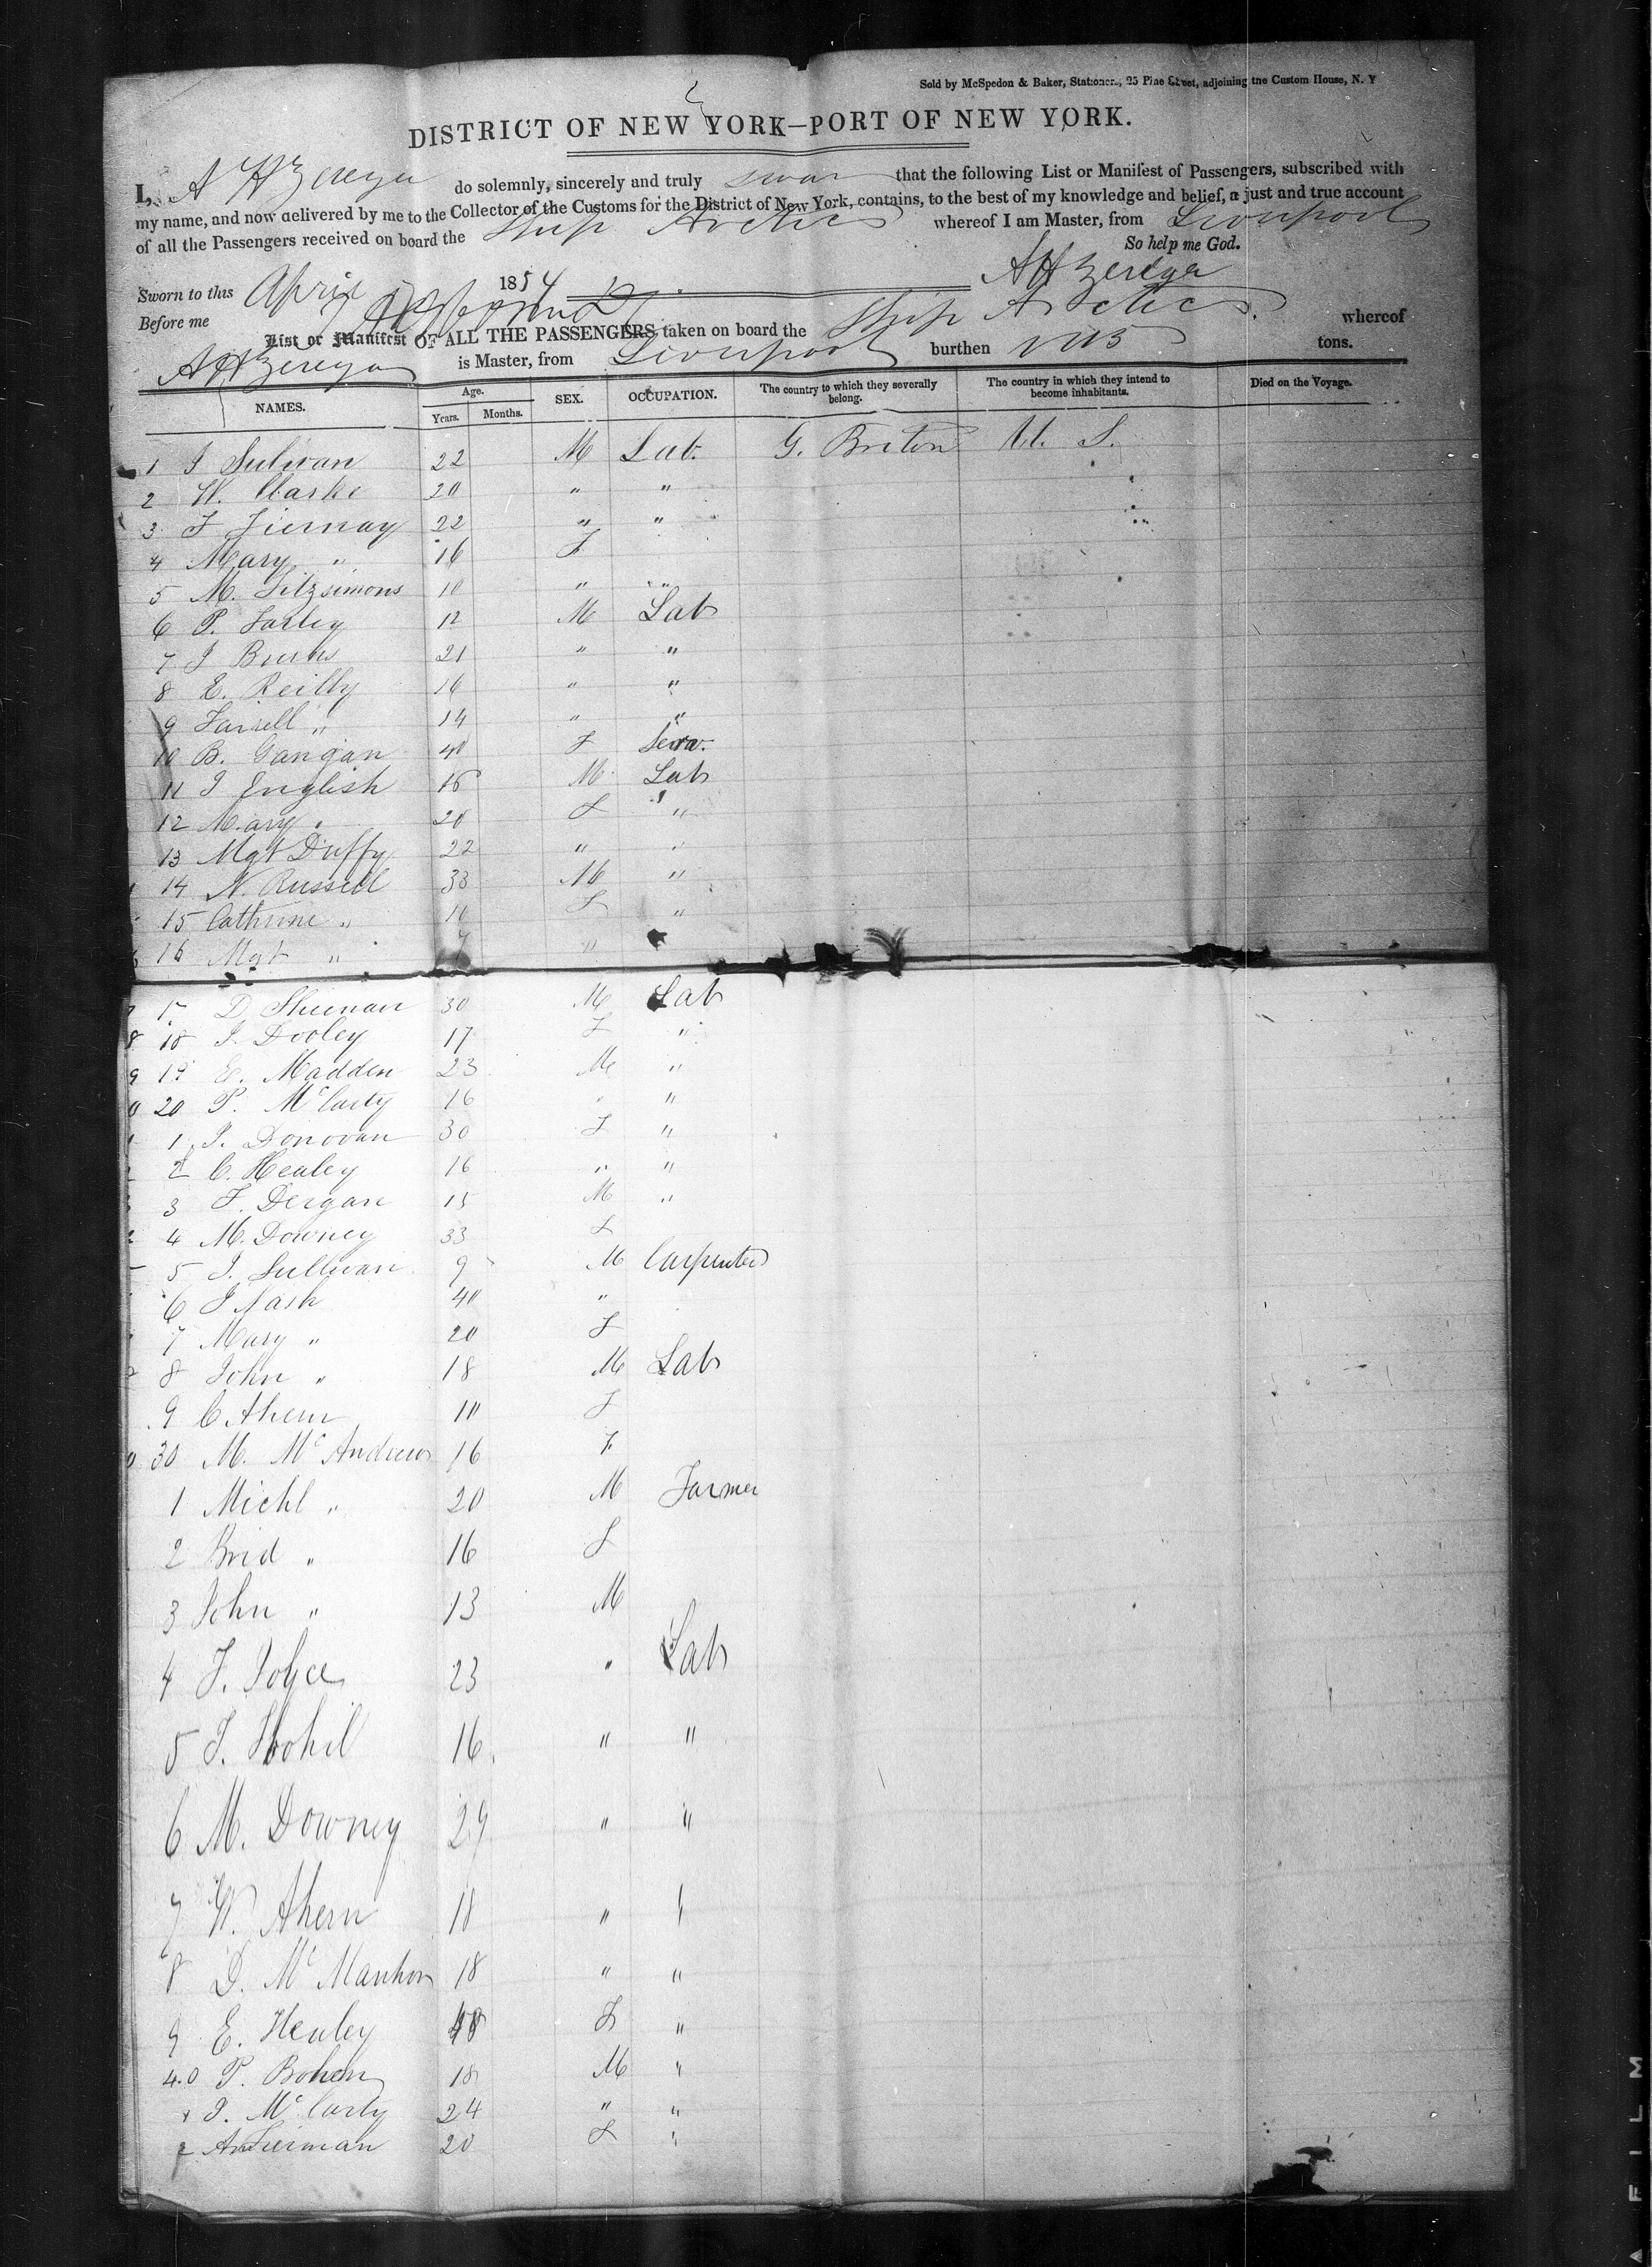 Sold by McSpedon & Baker, Stationers, 25 Pine Street, adjoining the Custom House, N. Y
DISTRICT OF NEW YORK—PORT OF NEW YORK.
I, A H Zerega do solemnly, sincerely and truly swear that the following List or Manifest of Passengers, subscribed with
my name, and now delivered by me to the Collector of the Customs for the District of New York, contains, to the best of my knowledge and belief, a just and true account
of all the Passengers received on board the Ship Arctic whereof I am Master, from Liverpool
So help me God.
Sworn to this April 1854 A H Zerega
Before me
List or Manifest OF ALL THE PASSENGERS taken on board the Ship Arctic whereof
A H Zerega is Master, from Liverpool burthen 1115 tons.
NAMES. Age. Years. Months. SEX. OCCUPATION. The country to which they severally belong. The country in which they intend to become inhabitants. Died on the Voyage.
1 J Sulivan 22 M Lab. G. Briton U. S.
2 W. Clarke 20 " "
3 F Tiernay 22 " "
4 Mary " 16 F
5 M. Fitzsimons 10 " "
6 P. Farley 12 M Lab
7 J Burns 21 " "
8 E. Reilly 16 " "
9 Farrell " 14 " "
10 B. Gangan 40 F Serv.
11 J English 16 M Lab
12 Mary " 20 F "
13 Mgt Duffy 22 " "
14 N. Russell 33 M "
15 Cathrine " 10 F "
16 Mgt " 7 "
17 D Sheenan 30 M Lab
18 J. Dooley 17 F "
19 E. Madden 23 M "
20 P. McCarty 16 " "
1 J. Donovan 30 F "
2 C. Healey 16 " "
3 F. Dergan 15 M "
4 M. Downey 33 F
5 J. Sullivan 9 M Carpenter
6 J Nash 40 "
7 Mary " 20 F
8 John " 18 M Lab
9 C Ahern 10 F
30 M. McAndrew 16 F
1 Michl " 20 M Farmer
2 Brid " 16 F
3 John " 13 M
4 F. Joyce 23 " Lab
5 J. 16 " "
6 M. Downey 29 " "
7 W. Ahern 18 " "
8 D. McManhon 18 " "
9 E. Healey F "
40 P. Bohen 18 M "
J. McCarty 24 " "
2 20 F "
FILM